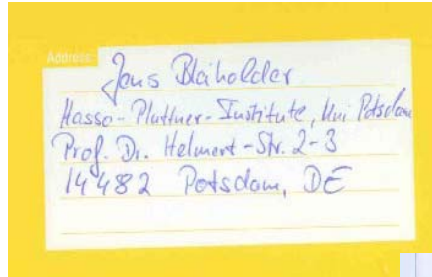 Address:
Jens Bleiholder
Hasso-Plattner-Institute, Uni Potsdam
Prof. Dr. Helmert-Str. 2-3
14482 Potsdam, DE